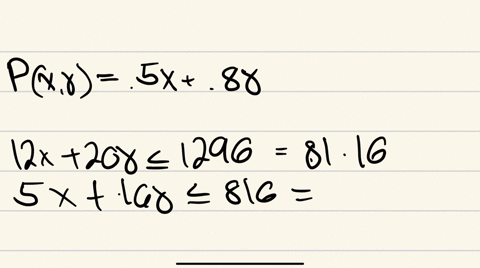 P(x,y) = .5x + .8y
12x + 20y ≤ 1296 = 81 · 16
5x + 16y ≤ 816 =